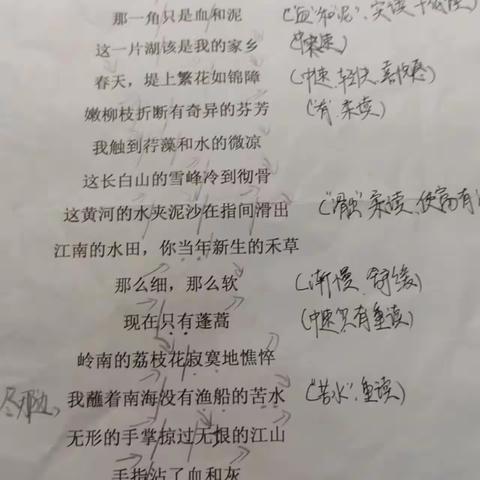 那一角只是血和泥 ("血"和"泥",实读
这一片湖该是我的家乡 (快速)
春天，堤上繁花如锦障 (中速、轻快、喜悦感)
嫩柳枝折断有奇异的芬芳 ("有"柔读)
我触到荇藻和水的微凉
这长白山的雪峰冷到彻骨
这黄河的水夹泥沙在指间滑出 ("滑出"柔读、使富有
江南的水田，你当年新生的禾草
那么细，那么软 (渐慢 舒缓)
现在只有蓬蒿 (中速 只有重读)
岭南的荔枝花寂寞地憔悴
尽那边， 我蘸着南海没有渔船的苦水 ("苦水"，重读)
无形的手掌掠过无恨的江山
手指沾了血和灰